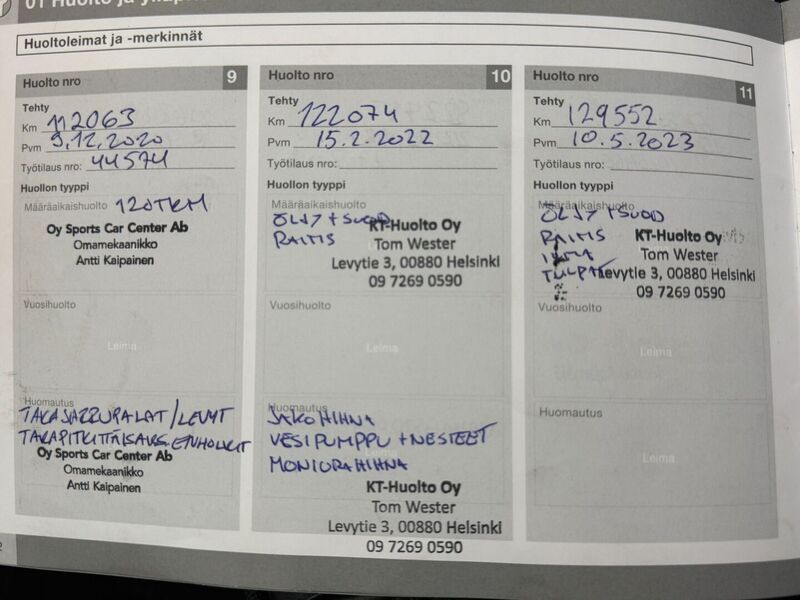 01 Huolto ja
Huoltoleimat ja -merkinnät
Huolto nro 9
Tehty
Km 112063
Pvm 9.12.2020
Työtilaus nro: 44574
Huollon tyyppi
Määräaikaishuolto 120TKM
Oy Sports Car Center Ab
Omamekaanikko
Antti Kaipainen
Vuosihuolto
Leima
Huomautus
TAKAJARRUPALAT/LEVYT
TAKAPITKITTÄISAKS. ETUHOLKIT
Oy Sports Car Center Ab
Omamekaanikko
Antti Kaipainen
Huolto nro 10
Tehty
Km 122074
Pvm 15.2.2022
Työtilaus nro:
Huollon tyyppi
Määräaikaishuolto
ÖLJY + SUOD
RAITIS
KT-Huolto Oy
Tom Wester
Levytie 3, 00880 Helsinki
09 7269 0590
Vuosihuolto
Leima
Huomautus
JAKOHIHNA
VESIPUMPPU + NESTEET
MONIURAHIHNA
KT-Huolto Oy
Tom Wester
Levytie 3, 00880 Helsinki
09 7269 0590
Huolto nro 11
Tehty
Km 129552
Pvm 10.5.2023
Työtilaus nro:
Huollon tyyppi
Määräaikaishuolto
ÖLJY + SUOD
RAITIS
ILMA
TULPAT
KT-Huolto Oy
Tom Wester
Levytie 3, 00880 Helsinki
09 7269 0590
Vuosihuolto
Leima
Huomautus
Leima